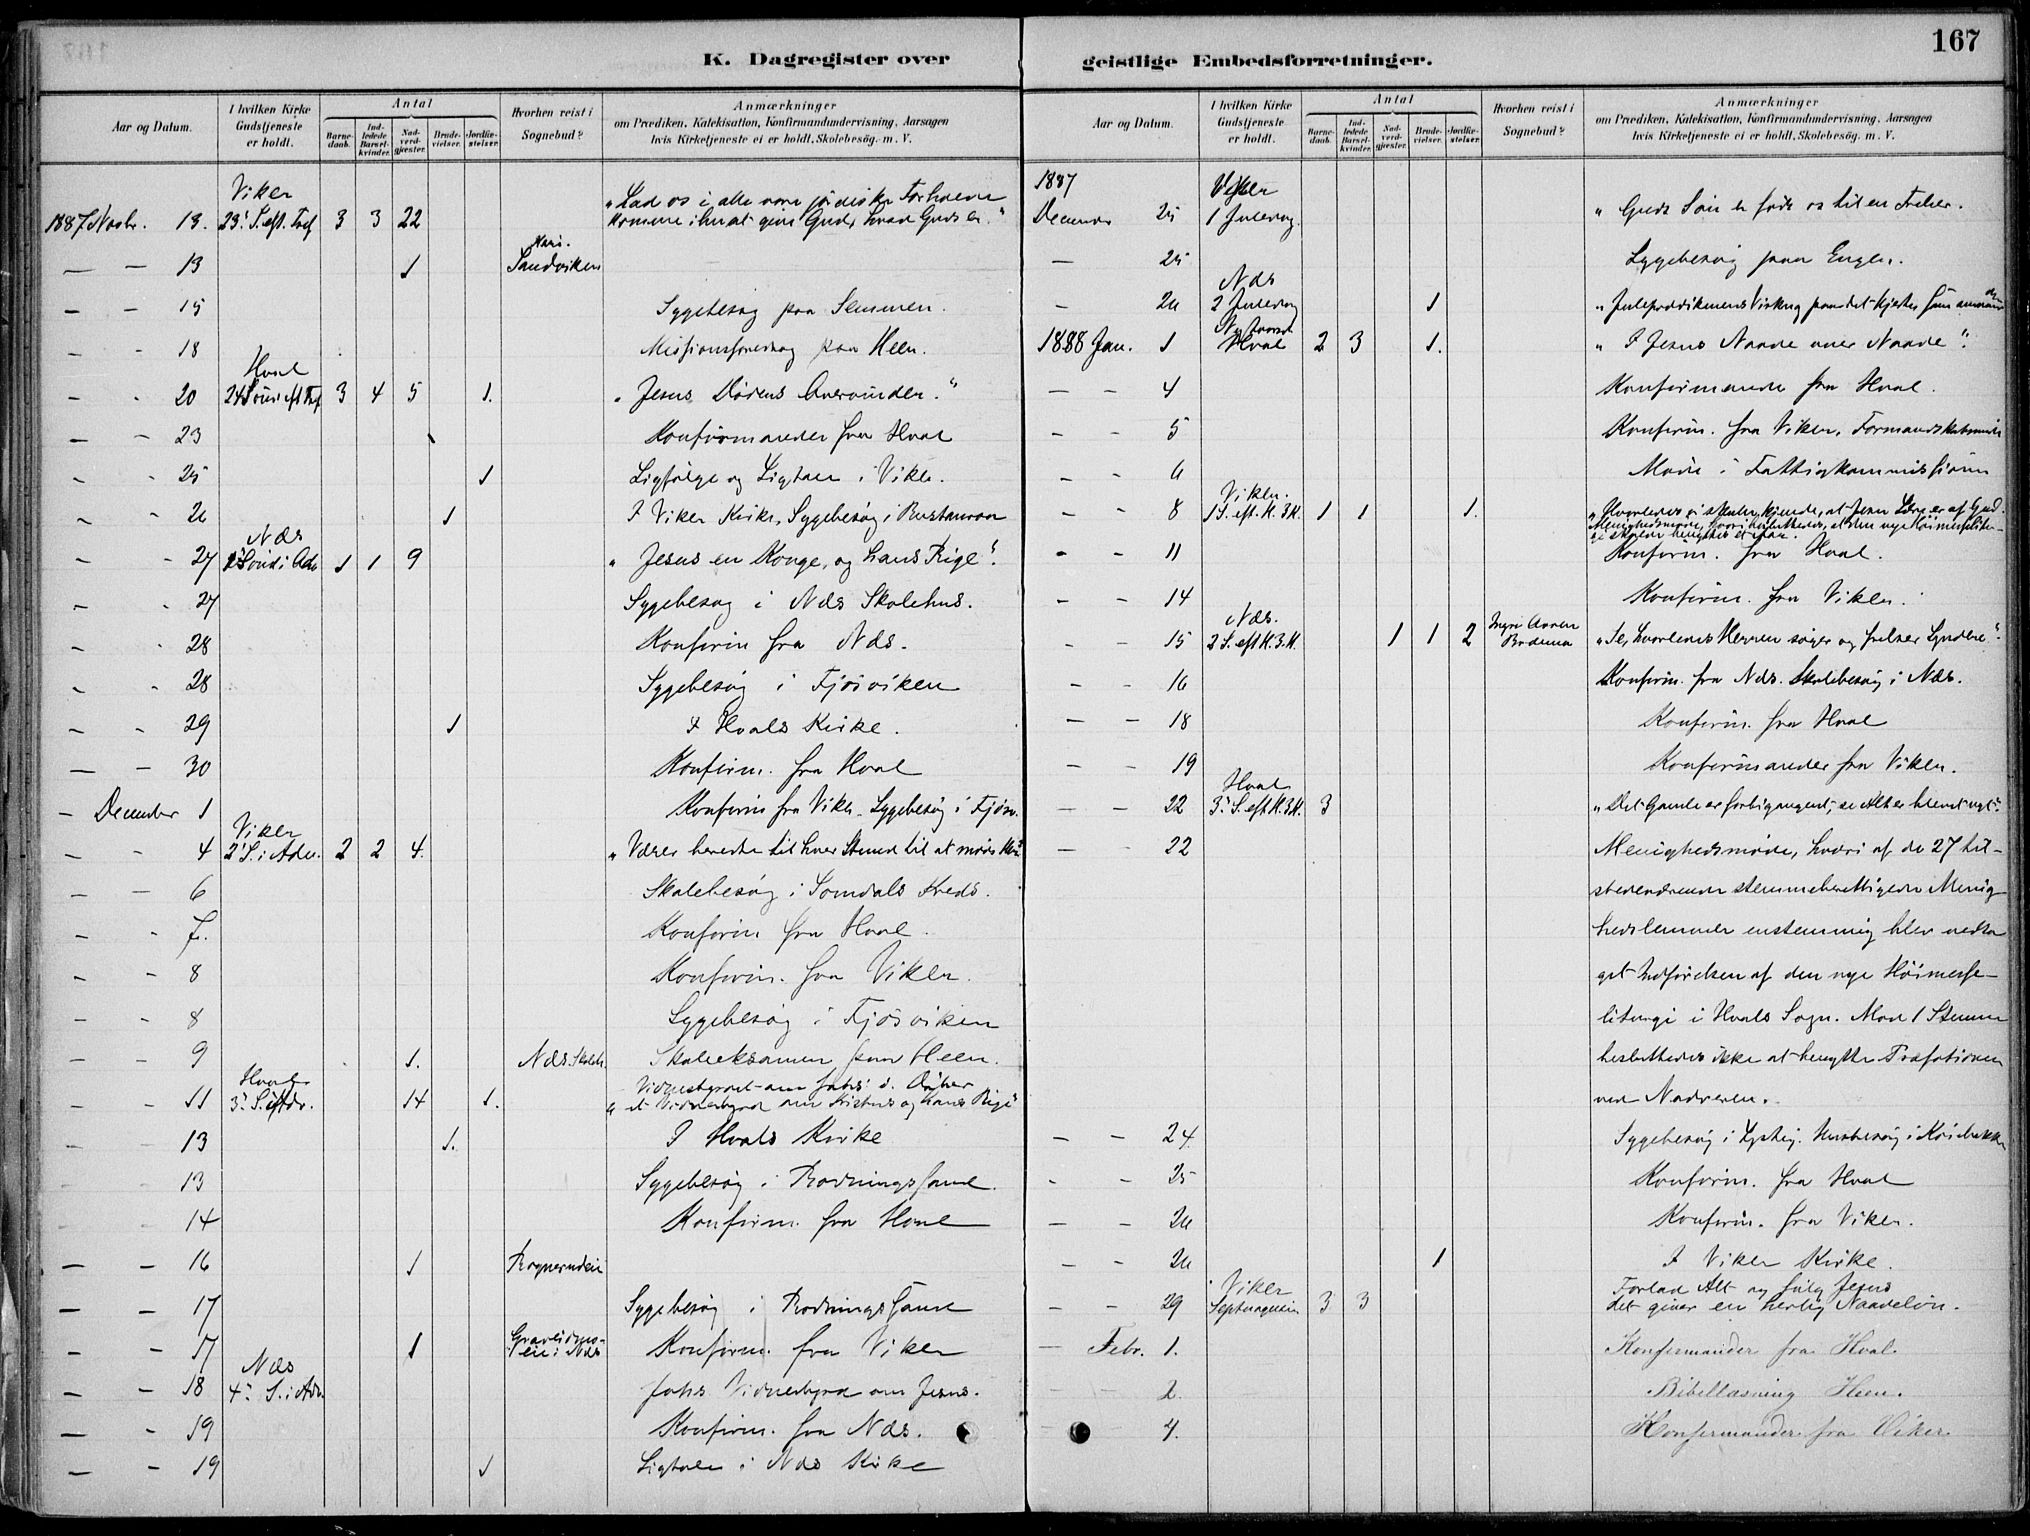 167
K. Dagregister over geistlige Embedsforretninger.
Aar og Datum.
I hvilken Kirke Gudstjeneste er holdt.
Antal
Barnedaab.
Indledede Barselkvinder.
Nadverdgjæster.
Brudevielser.
Jordfæstelser.
Hvorhen reist i Sognebud?
Anmærkninger
om Prædiken, Katekisation, Konfirmandundervisning, Aarsagen
hvis Kirketjeneste ei er holdt, Skolebesøg. m. V.
1887 Novbr. 13. Viker 23' S. eft. Tref 3 3 22 "Lad os i alle vore jordiske Forholde
komme ihu at give Gud, hvad Guds er."
— — 13 1 Sandviken
— — 15 Sygebesøg paa Semmen.
- - 18 Missionsforedrag paa Heen.
— - 20 Hval 24 Sønd. eft Tref 3 4 5 1. "Jesus Dødens Overvinder."
— - 23 Konfirmander fra Hval
- - 25 1 Ligfølge og Ligtale i Viker.
- - 26 1 I Viker Kirke, Sygebesøg i
- - 27 Næs 1 Sønd i Adv 1 1 9 "Jesus en Konge, og hans Rige".
- - 27 Sygebesøg i Næs Skolehus.
- - 28 Konfirm fra Næs.
- - 28 Sygebesøg i Fjøsviken
- - 29 1 I Hvals Kirke.
— — 30 Konfirm. fra Hval
— December 1 Konfirm fra Viker. Sygebesøg i Fjøsv.
- - 4 Viker 2' S. i Adv. 2 2 4. "Værer beredte til hver Stund til at møde
- — 6 Skolebesøg i Somdals Kreds.
- - 7. Konfirm fra Hval.
- - 8 Konfirm. fra Viker.
- - 8 Sygebesøg i Fjøsviken
- - 9 1. Næs Skoleh. Skoleeksamen paa Heen.
- - 11 Hval 3' S. i Adv. 14 1. Vidnesbyrdet om Johs. d. Døber
"et Vidnesbyrd om Kristus og hans Rige"
- - 13 1. I Hvals Kirke
- - 13 Sygebesøg i
- - 14 Konfirm. fra Hval
— — 16 1
— — 17 Sygebesøg i
— - 17 1 i Næs Konfirm. fra Viker
- — 18 Næs 4' S. i Adv. Johs Vidnesbyrd om Jesus.
— - 19 Konfirm. fra Næs.
— - 19 1 Ligtale i Næs Kirke
Aar og Datum.
I hvilken Kirke Gudstjeneste er holdt.
Antal
Barnedaab.
Indledede Barselkvinder.
Nadverdgjæster.
Brudevielser.
Jordfæstelser.
Hvorhen reist i Sognebud?
Anmærkninger
om Prædiken, Katekisation, Konfirmandundervisning, Aarsagen
hvis Kirketjeneste ei er holdt, Skolebesøg. m. V.
1887
December 25 Viker 1 Juledag. "Guds Søn er født os til en Frelser.
— 25 Sygebesøg paa Engen.
- 26 Næs 2 Juledag 1 "Juleprædikenens Virkning paa det Hjerte,
1888 Jan. 1 Nytaarsd Hval 2 3 1. "I Jesus Naade over Naade".
— — 4 Konfirmander fra Hval.
- - 5 Konfirm. fra Viker.
- - 6 Møde i Fattigkommissionen
- - 8 Viker. 1 S. eft. H. 3 K. 1 1 1. "Hvorledes vi skulle kjende, at Jesu Lære er af Gud.
- - 11 Konfirm. fra Hval.
— - 14 Konfirm. fra Viker.
- - 15 Næs. 2 S. eft H. 3 K. 1 1 2 "Se, hvorledes Herren søger og frelser Syndere".
- - 16 Konfirm. fra Næs. Skolebesøg i Næs.
— — 18 Konfirm. fra Hval
— - 19 Konfirmander fra Viker.
— - 22 Hval 3' S. eft H. 3 K. 3 "Det Gamle er forbigangent, se Alt er blevet nyt".
— - 22 Menighedsmøde, hvori af de 27 til-
stedeværende stemmeberettigede Menig-
hedslemmer enstemmig blev vedta-
get Indførelsen af den nye Høimesse-
liturgi i Hvals Sogn. Mod 1 Stemme
besluttedes ikke at benytte Præfationen
ved Nadveren.
— — 24 Sygebesøg i
- - 25 Konfirm. fra Hval
— - 26 Konfirm. fra Viker.
— - 26 1 I Viker Kirke.
— - 29 Viker Septuagesim 3 3 Forlad Alt og følg Jesus
det giver en herlig Naadeløn.
— Febr. 1. Konfirmander fra Hval.
- - 2. Bibellæsning Heen.
— 4. Konfirmander fra Viker